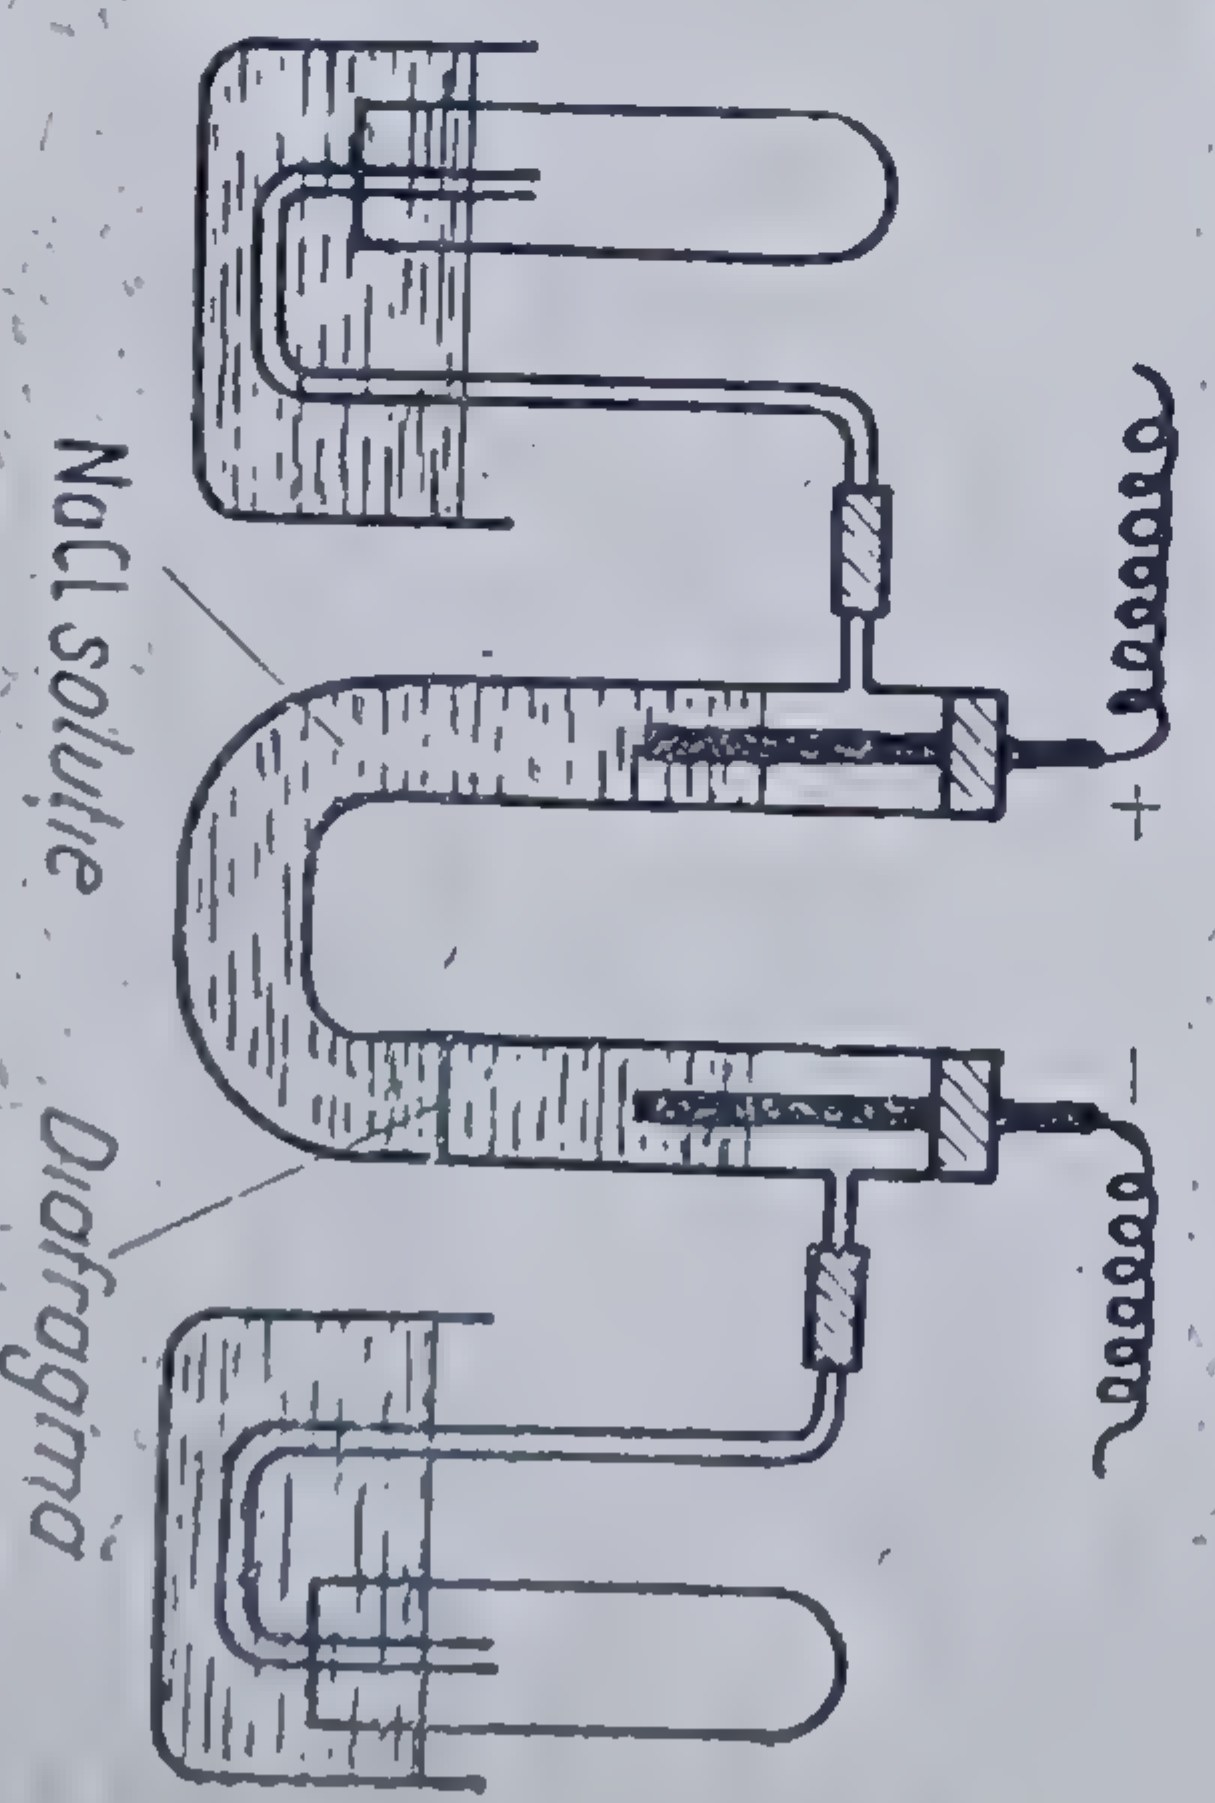 +
−
NaCl soluţie
Diafragma